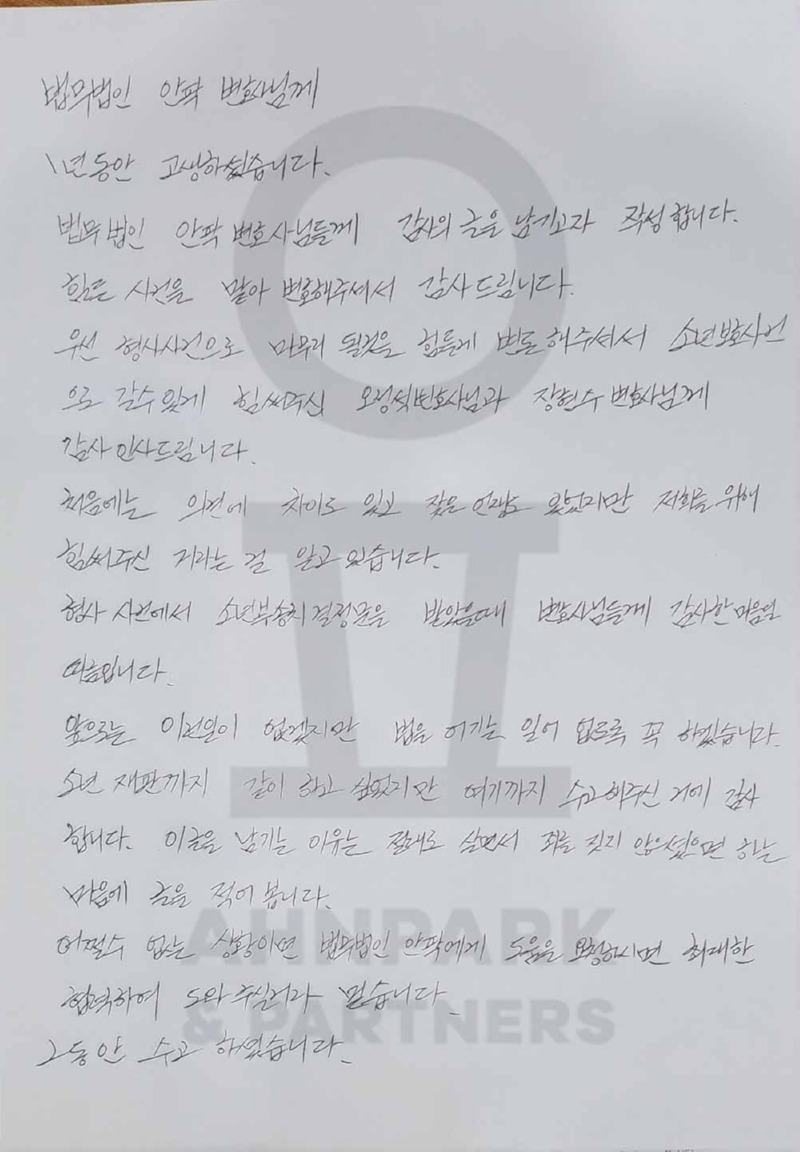 법무법인 안팍 변호사님께
1년동안 고생하셨습니다.
법무법인 안팍 변호사님들께 감사의 글을 남기고자 작성합니다.
힘든 사건을 맡아 변호해주셔서 감사드립니다.
우선 형사사건으로 마무리 될것을 힘들게 변론해주셔서 소년보호사건
으로 갈수있게 힘써주신 오정석변호사님과 장현수변호사님께
감사인사드립니다.
처음에는 의견에 차이도 있고 잦은 언쟁도 있었지만 저희를 위해
힘써주신 거라는 걸 알고있습니다.
형사 사건에서 소년부송치결정문을 받았을때 변호사님들께 감사한마음을
따름입니다.
앞으로는 이런일이 없겠지만 법을 어기는 일어 없도록 꼭 하겠습니다.
소년 재판까지 같이 하고 싶었지만 여기까지 수고해주신 거에 감사
합니다. 이글을 남기는 이유는 절대로 살면서 죄를 짓지 않으셨으면 하는
마음에 글을 적어봅니다.
어쩔수 없는 상황이면 법무법인 안팍에게 도움을 요청하시면 최대한
협력하여 도와주실거라 믿습니다.
그동안 수고 하셨습니다.
AHNPARK
& PARTNERS